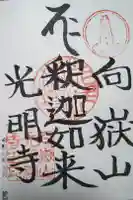 向嶽山
釋迦如来
光明寺